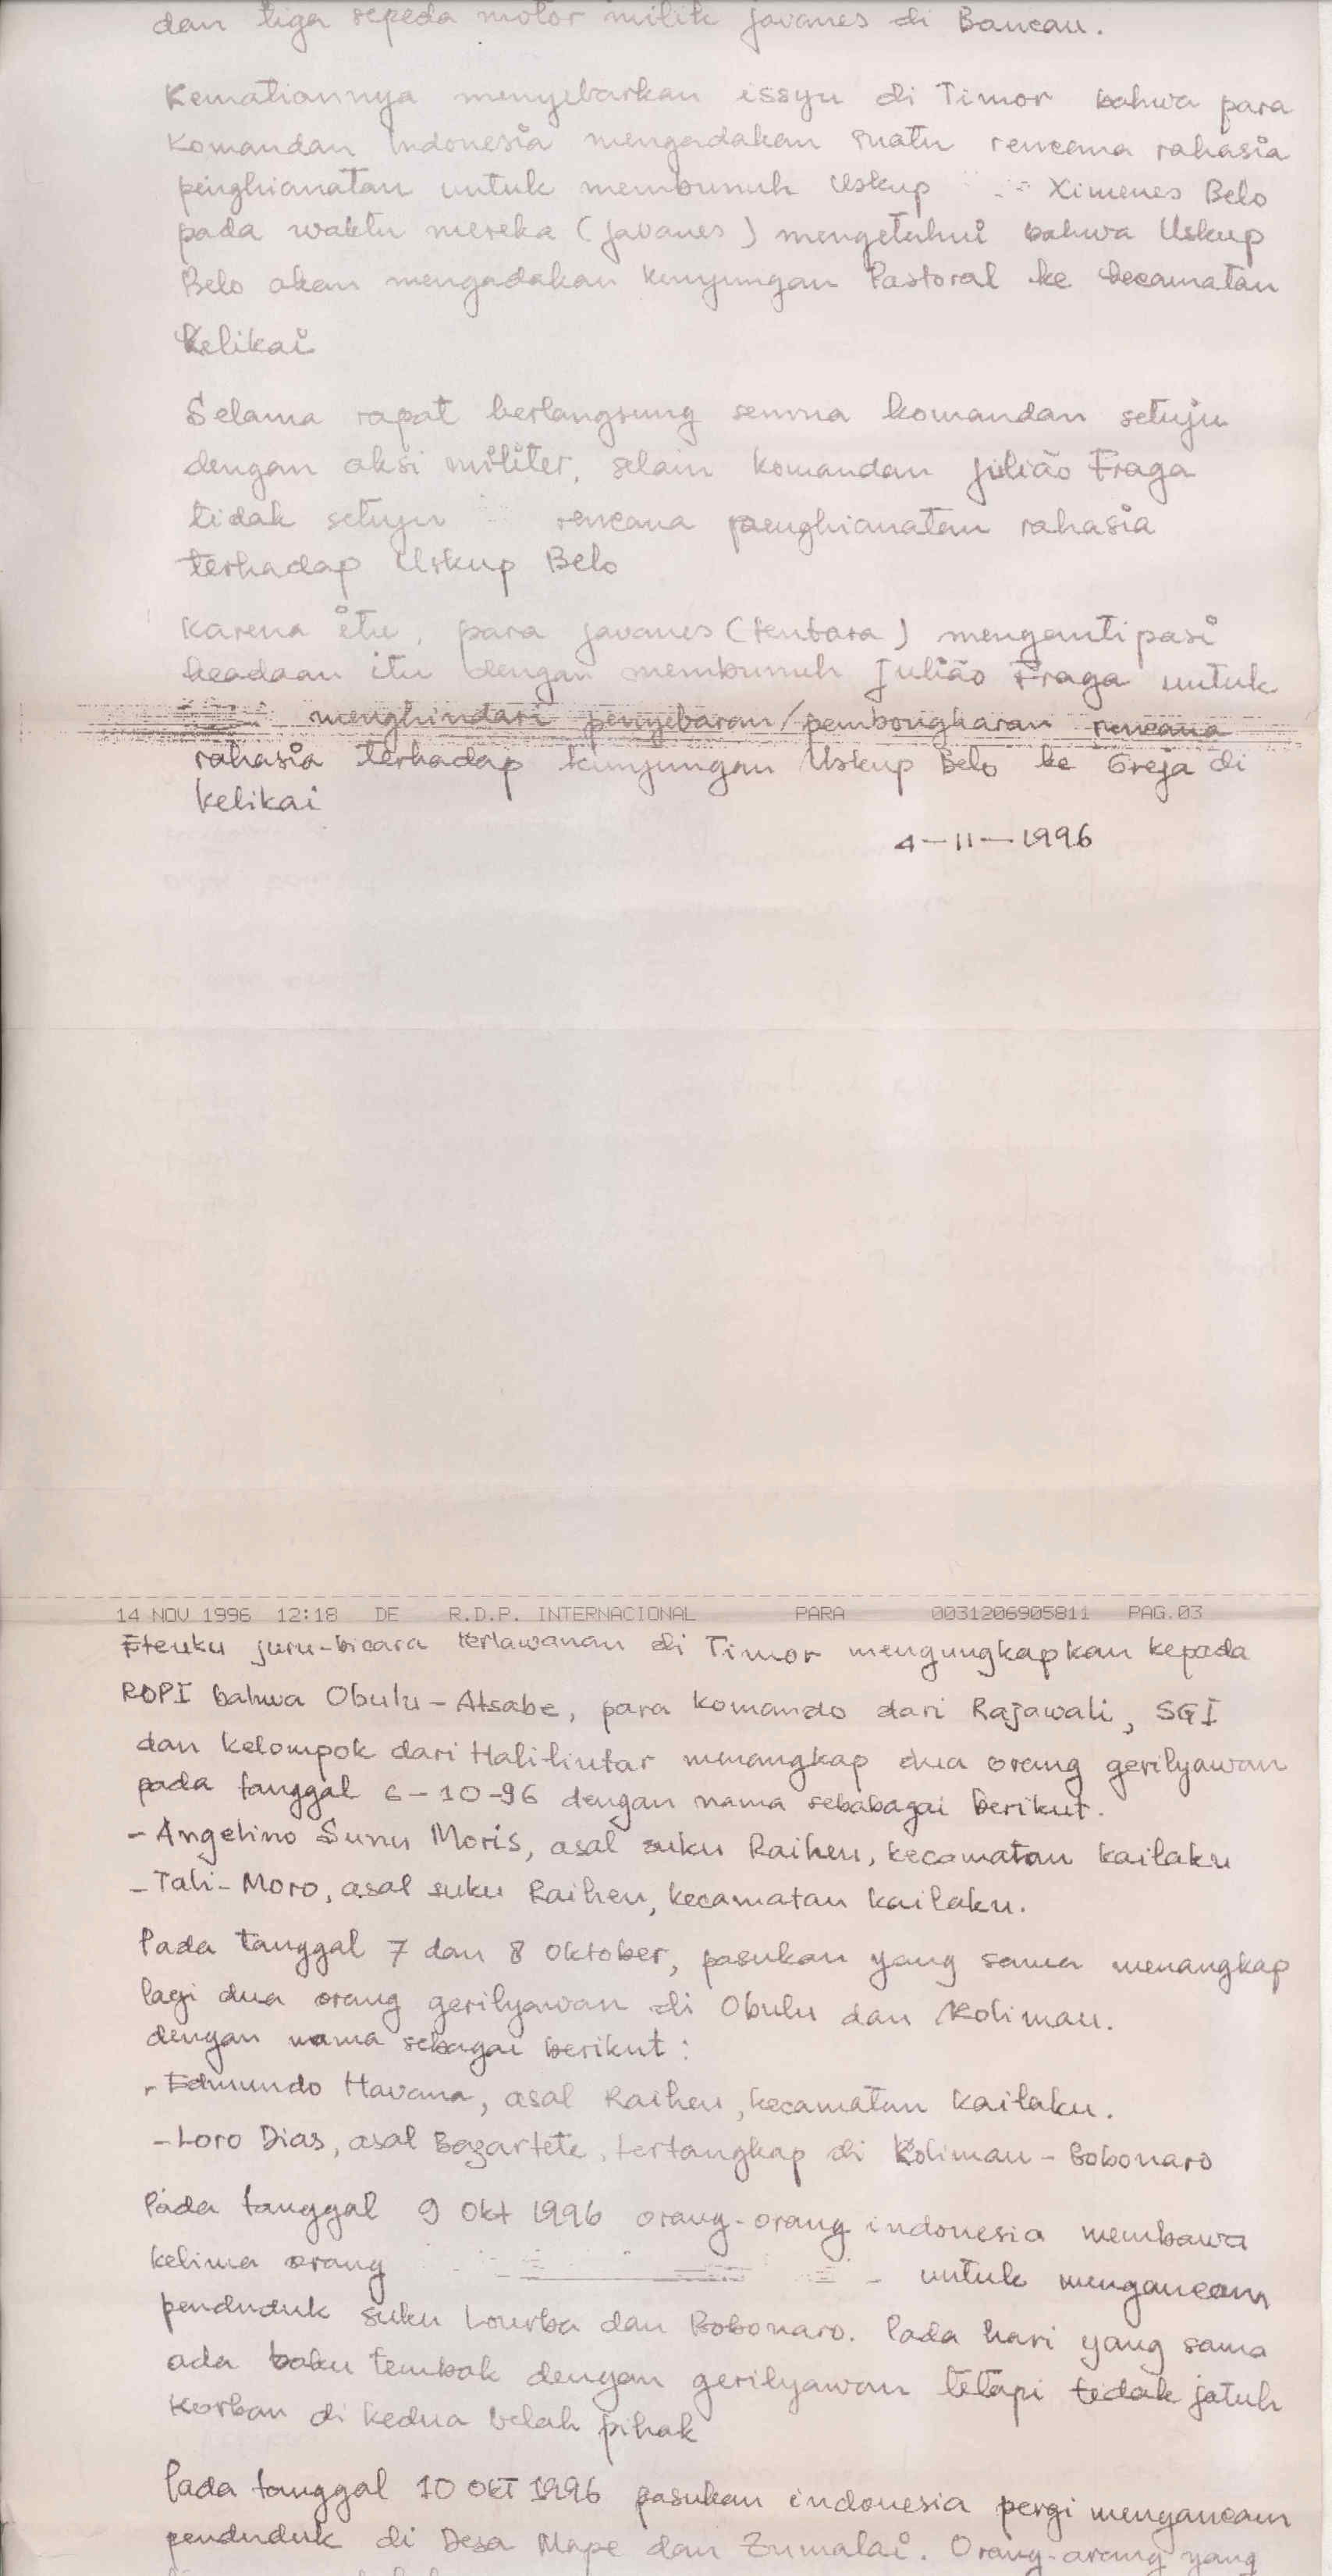 dan tiga sepeda motor milik javanes di Baucau.
Kematiannya menyebarkan issyu di Timor bahwa para
Komandan Indonesia mengadakan suatu rencana rahasia
penghianatan untuk membunuh Uskup Ximenes Belo
pada waktu mereka (javanes) mengetahui bahwa Uskup
Belo akan mengadakan kunjungan Pastoral ke kecamatan
Kelikai
Selama rapat berlangsung semua komandan setuju
dengan aksi militer, selain komandan julião Fraga
tidak setuju rencana penghianatan rahasia
terhadap Uskup Belo
Karena itu, para javanes (tentara) mengantipasi
keadaan itu dengan membunuh Julião Fraga untuk
menghindari penyebaran/pembongkaran rencana
rahasia terhadap kunjungan Uskup Belo ke Greja di
Kelikai
4-11-1996
14 NOV 1996 12:18 DE R.D.P. INTERNACIONAL PARA 0031206905811 PAG.03
juru-bicara di Timor mengungkapkan kepada
RDPI bahwa Obulu-Atsabe, para komando dari Rajawali, SGI
dan kelompok dari Halilintar menangkap dua orang gerilyawan
pada tanggal 6-10-96 dengan nama sebabagai berikut.
- Angelino Sunu Moris, asal suku Raiheu, kecamatan kailaku
- Tali-Moro, asal suku Raiheu, kecamatan kailaku.
Pada tanggal 7 dan 8 Oktober, pasukan yang sama menangkap
lagi dua orang gerilyawan di Obulu dan Kolimau.
dengan nama sebagai berikut:
- Edmundo Havana, asal Raiheu, kecamatan kailaku.
- Loro Dias, asal Bazartete, tertangkap di Kolimau - Bobonaro
Pada tanggal 9 Okt 1996 orang-orang indonesia membawa
kelima orang untuk mengancam
penduduk suku Lourba dan Bobonaro. Pada hari yang sama
ada baku tembak dengan gerilyawan tetapi tidak jatuh
korban di kedua belah pihak
Pada tanggal 10 OKT 1996 pasukan indonesia pergi mengancam
penduduk di Desa Mape dan Zumalai. Orang-orang yang